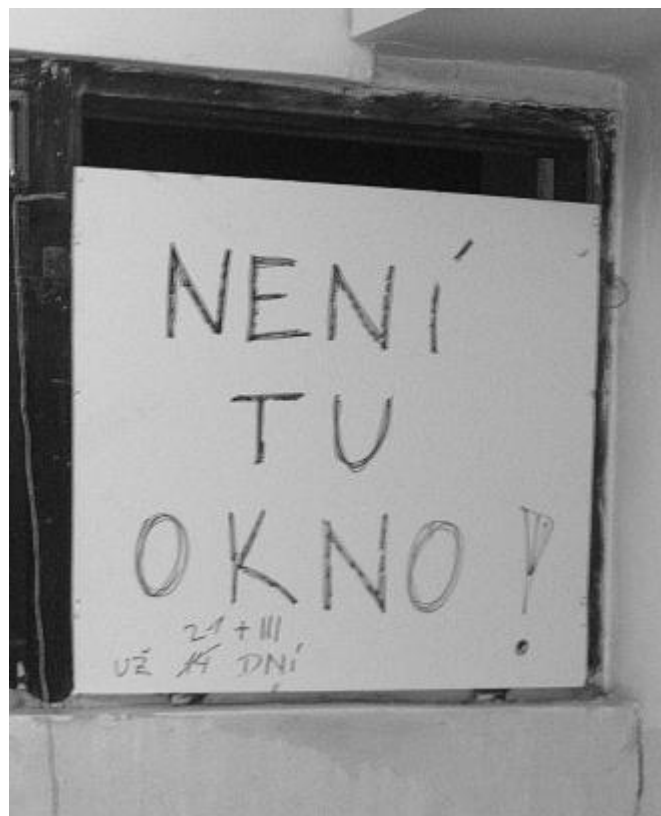 NENÍ
TU
OKNO!
21 + III
UŽ 14 DNÍ